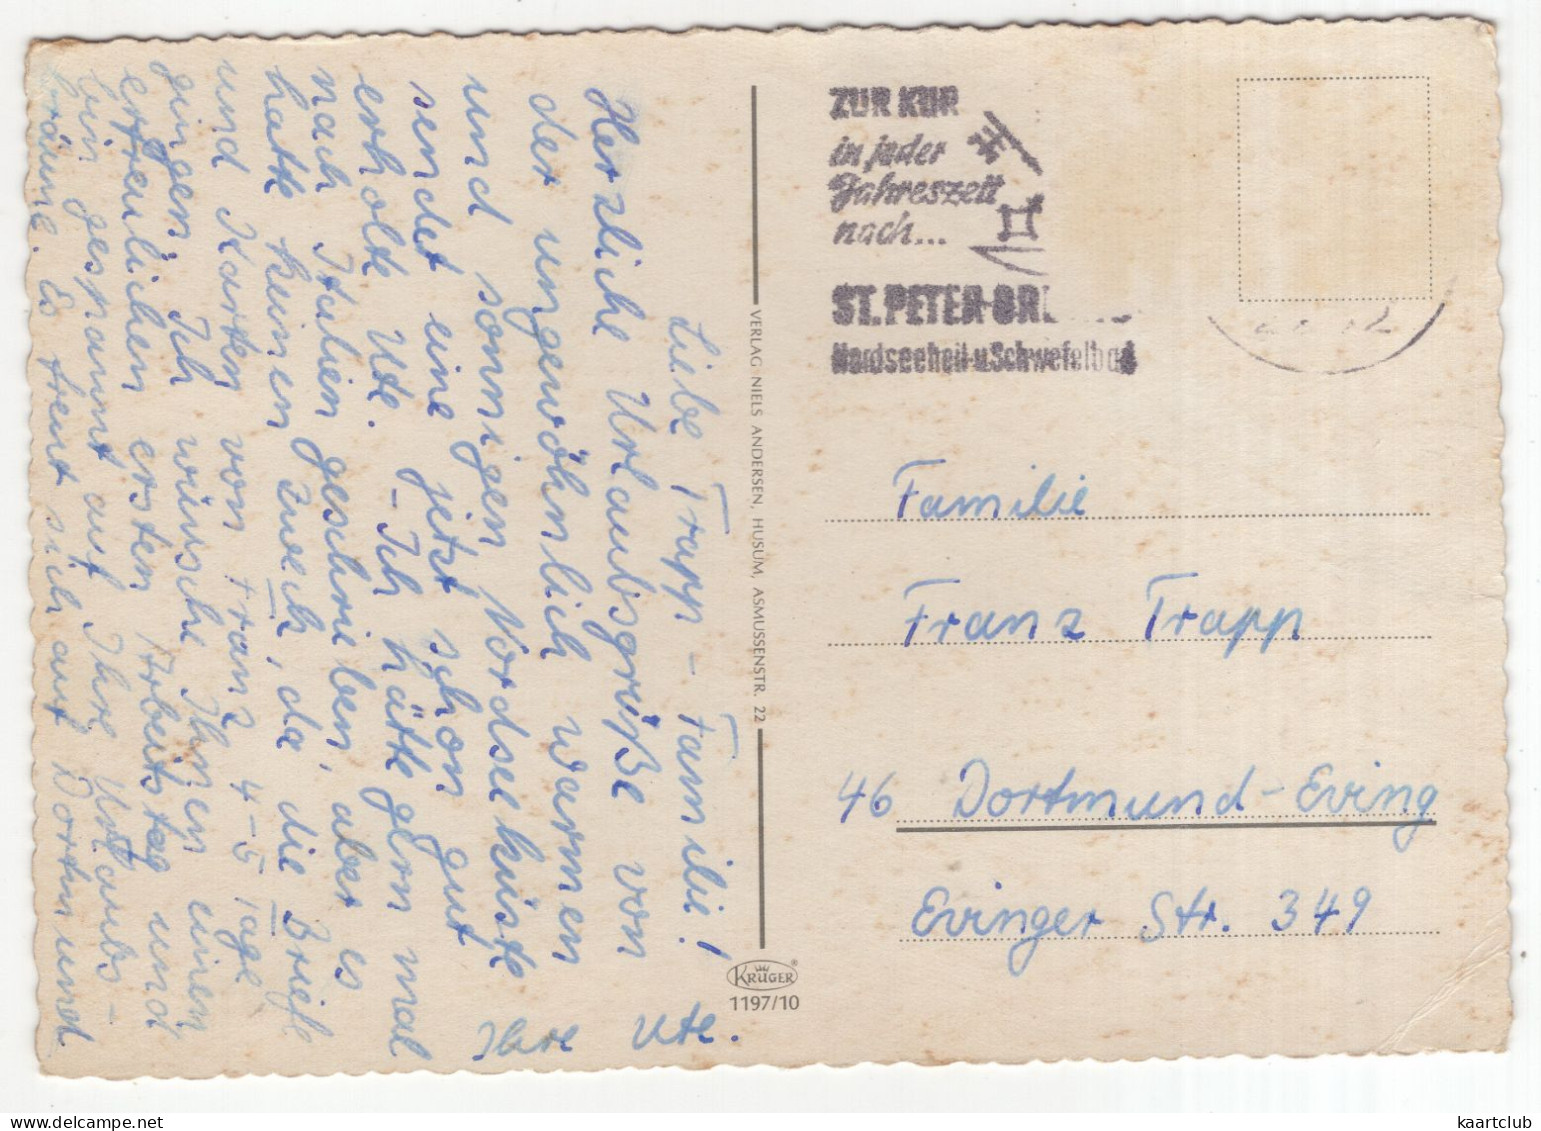 Liebe Trapp - Familie!
Herzliche Urlaubsgrüße von
der ungewöhnlich warmen
und sonnigen Nordseeküste
sendet eine jetzt schon gut
erholte Ute. - Ich hätte gern mal
nach Italien geschrieben, aber es
hatte keinen Zweck, da die Briefe
und Karten von Franz 4-5 Tage
gingen. Ich wünsche Ihnen einen
erfreulichen ersten Arbeitstag und
bin gespannt auf Ihre Urlaubs-
bräune. Es freut sich auf Dortmund
Ihre Ute.
VERLAG NIELS ANDERSEN, HUSUM, ASMUSSENSTR. 22
KRÜGER
1197/10
ZUR KUR
in jeder
Jahreszeit
nach...
ST. PETER-OR
Nordseeheil-u.Schwefelbad
Familie
Franz Trapp
46 Dortmund-Eving
Evinger Str. 349
kaartclub